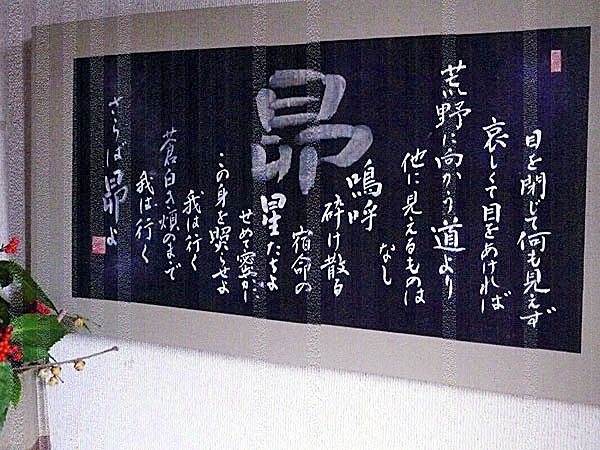 目を閉じて何も見えず
哀しくて目をあければ
荒野に向かう道より
他に見えるものは
なし
嗚呼
砕け散る
宿命の
星たちよ
せめて密かに
この身を照らせよ
我は行く
蒼白き頬のままで
我は行く
さらば昴よ
昴